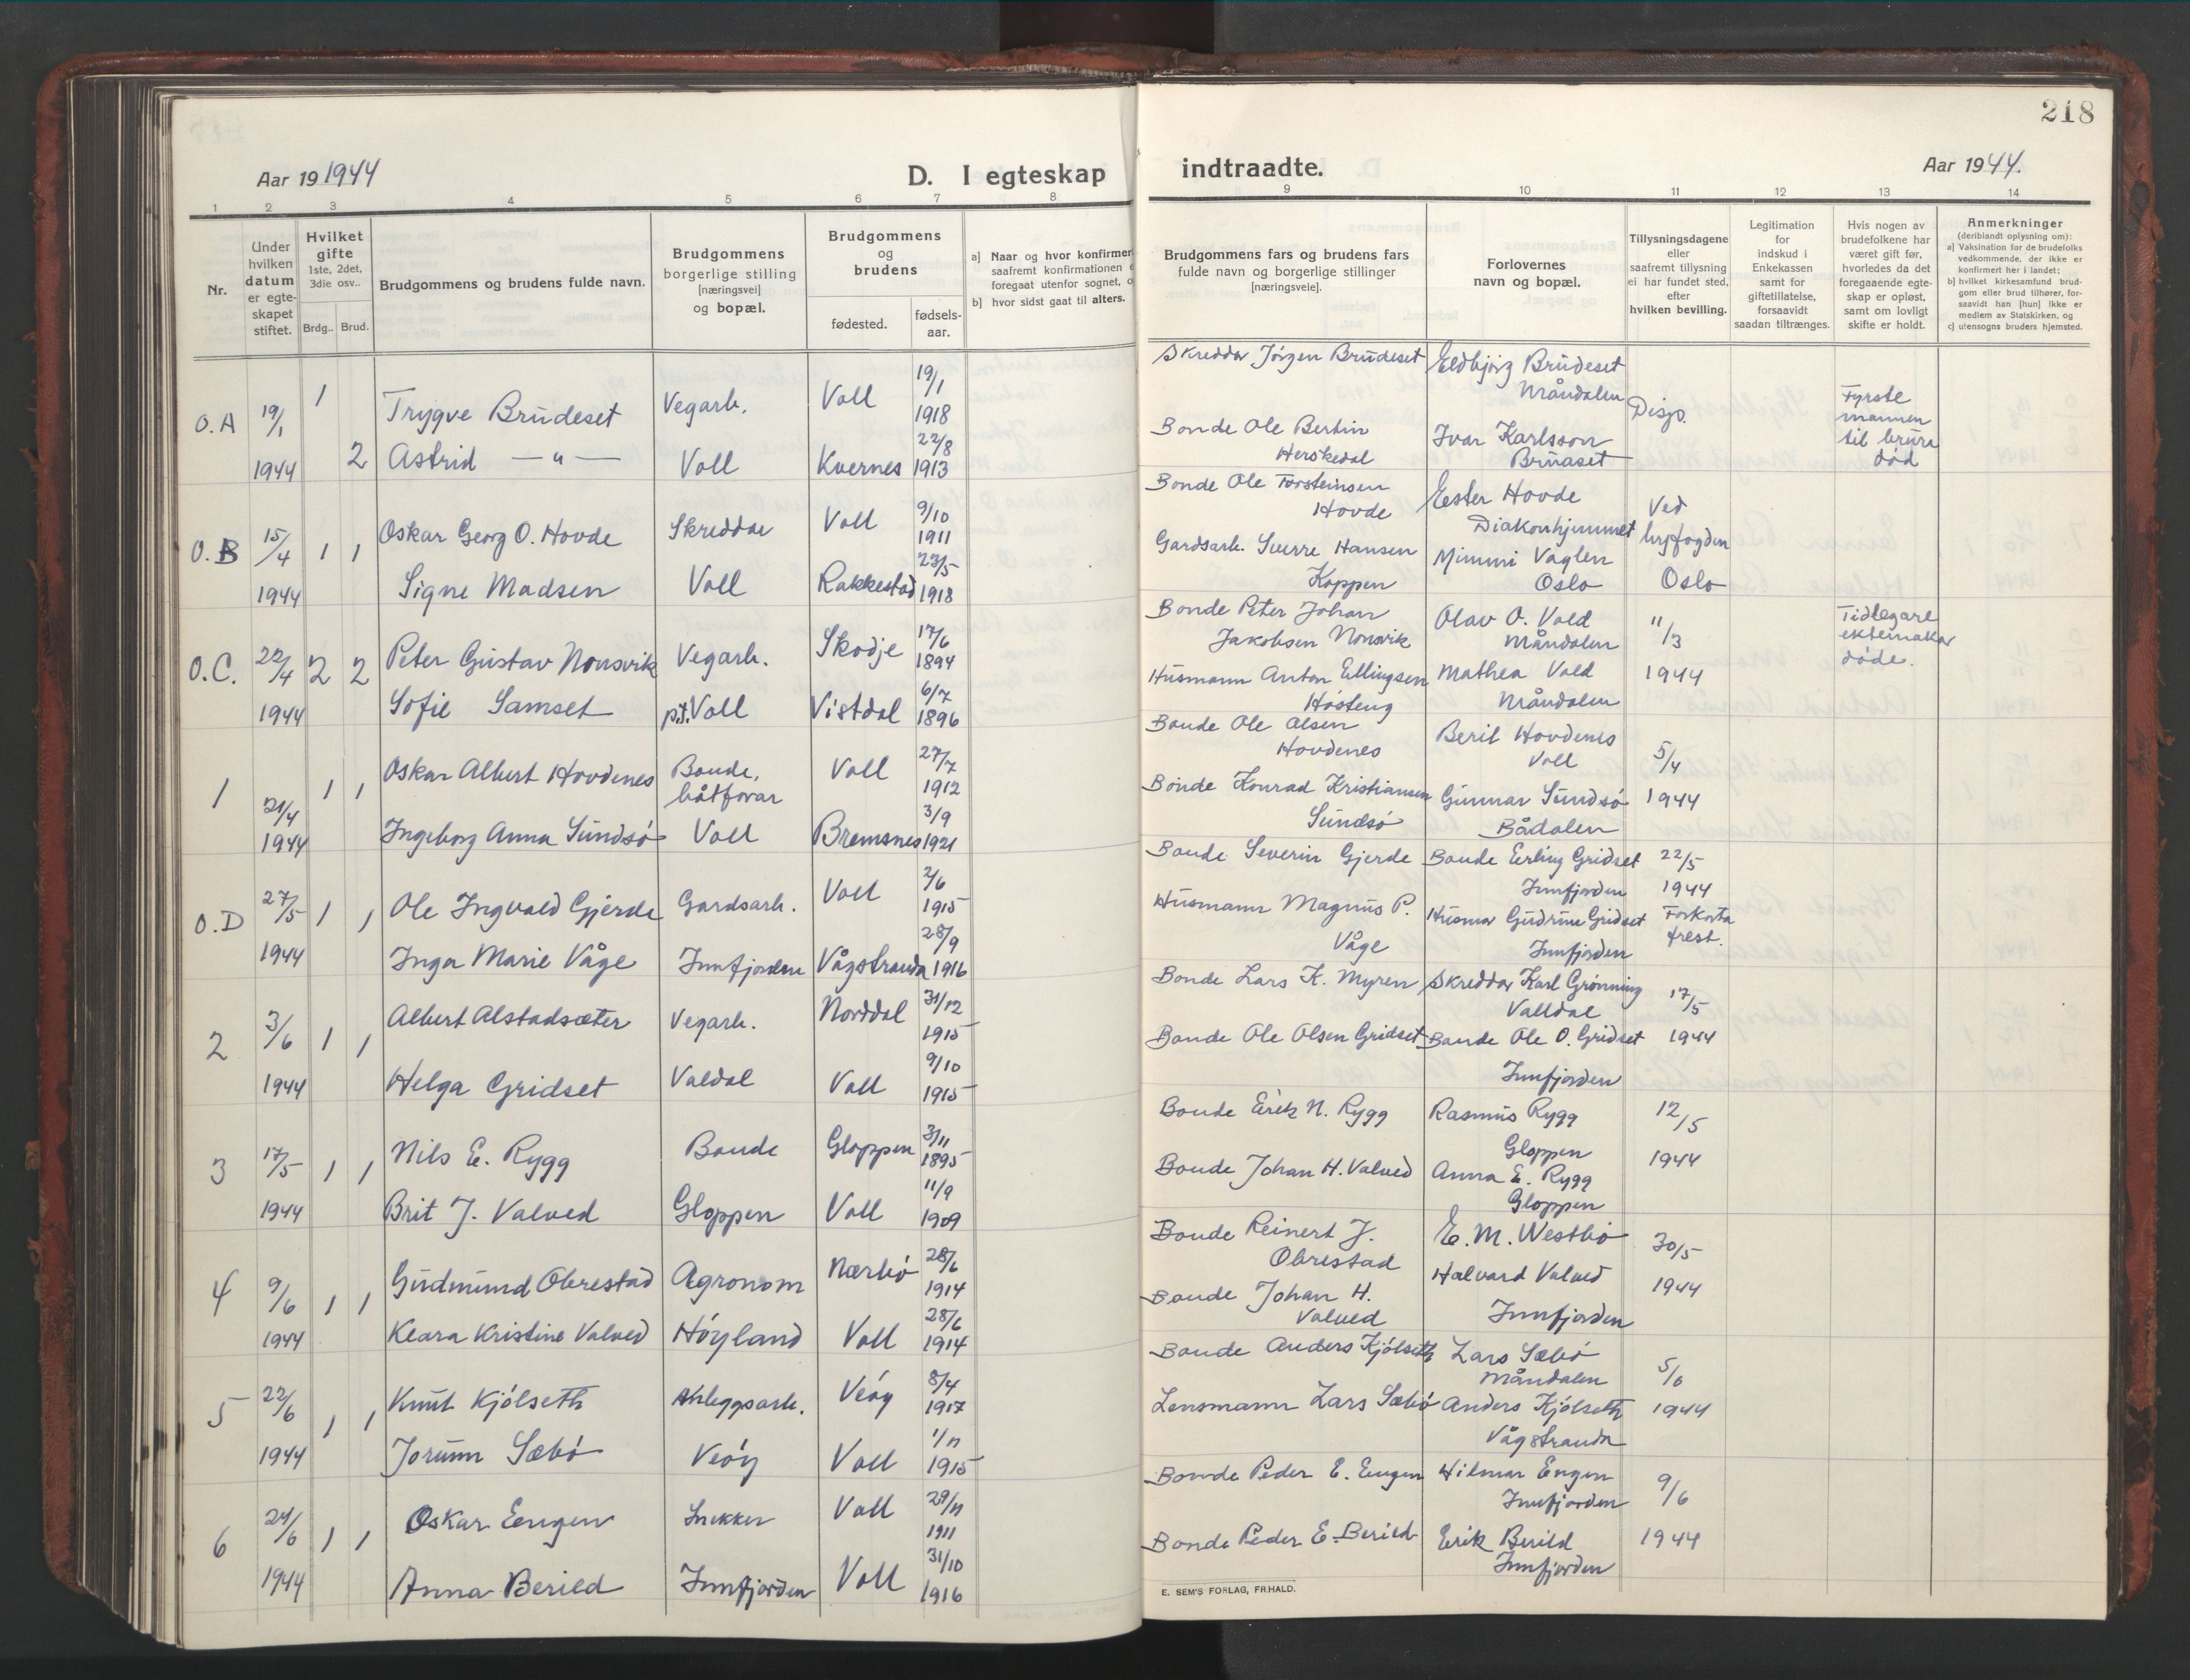 218
Aar 19 1944
D. I egteskap indtraadte.
Aar 1944.
1 2 3 4 5 6 7 8 9 10 11 12 13 14
Nr.
Under hvilken datum er egte-skapet stiftet.
Hvilket gifte 1ste, 2det, 3die osv..
Brdg.. Brud.
Brudgommens og brudens fulde navn.
Brudgommens borgerlige stilling [næringsvei] og bopæl.
Brudgommens og brudens
fødested.
fødsels-aar.
a] Naar og hvor konfirmer
saafremt konfirmationen
foregaat utenfor sognet, o
b] hvor sidst gaat til alters.
Brudgommens fars og brudens fars
fulde navn og borgerlige stillinger
[næringsveie].
Forlovernes
navn og bopæl.
Tillysningsdagene
eller
saafremt tillysning
ei har fundet sted,
efter
hvilken bevilling.
Legitimation
for
indskud i
Enkekassen
samt for
giftetillatelse,
forsaavidt
saadan tiltrænges.
Hvis nogen av
brudefolkene har
været gift før,
hvorledes da det
foregaaende egte-
skap er opløst,
samt om lovligt
skifte er holdt.
Anmerkninger
(deriblandt oplysning om):
a] Vaksination for de brudefolks
vedkommende, der ikke er
konfirmert her i landet;
b] hvilket kirkesamfund brud-
gom eller brud tilhører, for-
saavidt han [hun] ikke er
medlem av Statskirken, og
c] utensogns bruders hjemsted.
O.A 19/1 1 Trygve Brudeset Vegarb. Voll 19/1 1918 Skreddar Jørgen Brudeset Eldbjørg Brudeset Måndalen Disp. Fyrste mannen til brura død
1944 2 Astrid — " — Voll Kvernes 22/8 1913 Bonde Ole Bertin Herskedal Ivar Karlsson Bruaset
O.B 15/4 1 1 Oskar Georg O. Hovde Skreddar Voll 9/10 1911 Bonde Ole Torsteinsen Hovde Ester Hovde Diakonhjemmet Ved byfogden Oslo
1944 Signe Madsen Voll Rakkestad 23/5 1918 Gardsarb. Sverre Hansen Koppen Mimmi Vaglen Oslo
O.C. 22/4 2 2 Peter Gustav Nonsvik Vegarb. Skodje 17/6 1894 Bonde Peter Johan Jakobsen Nonsvik Olav O. Vold Måndalen 11/3 1944 Tidlegare ektemakar døde.
1944 Sofie Samset p.t. Voll Vistdal 6/7 1896 Husmann Anton Ellingsen Høsteng Mathea Vold Måndalen
1 21/4 1 1 Oskar Albert Hovdenes Bonde, båtførar Voll 27/7 1912 Bonde Ole Olsen Hovdenes Beril Hovdenes Voll 5/4 1944
1944 Ingeborg Anna Sundsø Voll Bremsnes 3/9 1921 Bonde Konrad Kristiansen Sundsø Gunnar Sundsø Bådalen
O.D 27/5 1 1 Ole Ingvald Gjerde Gardsarb. Voll 2/6 1915 Bonde Severin Gjerde Bonde Erling Gridset Innfjorden 22/5 1944 Forkorta frest.
1944 Inga Marie Våge Innfjorden Vågstranda 28/9 1916 Husmann Magnus P. Våge Husmor Gudrun Gridset Innfjorden
2 3/6 1 1 Albert Alstadsæter Vegarb. Norddal 31/12 1915 Bonde Lars K. Myren Skreddar Karl Grønning Valldal 17/5 1944
1944 Helga Gridset Valdal Voll 9/10 1915 Bonde Ole Olsen Gridset Bonde Ole O. Gridset Innfjorden
3 17/5 1 1 Nils E. Rygg Bonde Gloppen 3/11 1895 Bonde Erik N. Rygg Rasmus Rygg Gloppen 12/5 1944
1944 Brit J. Valved Gloppen Voll 11/9 1909 Bonde Johan H. Valved Anna E. Rygg Gloppen
4 9/6 1 1 Gudmund Obrestad Agronom Nærbø 28/6 1914 Bonde Reinert J. Obrestad E. M. Westbø 30/5 1944
1944 Klara Kristine Valved Høyland Voll 28/6 1914 Bonde Johan H. Valved Halvard Valved Innfjorden
5 22/6 1 1 Knut Kjølseth Anleggsarb. Veøy 8/4 1917 Bonde Anders Kjølseth Lars Sæbø Måndalen 5/6 1944
1944 Jorunn Sæbø Veøy Voll 1/11 1915 Lensmann Lars Sæbø Anders Kjølseth Vågstranda
6 24/6 1 1 Oskar Engen Snekker Voll 29/11 1911 Bonde Peder E. Engen Hilmar Engen Innfjorden 9/6 1944
1944 Anna Berild Innfjorden Voll 31/10 1916 Bonde Peder E. Berild Erik Berild Innfjorden
E. SEM'S FORLAG, FR.HALD.